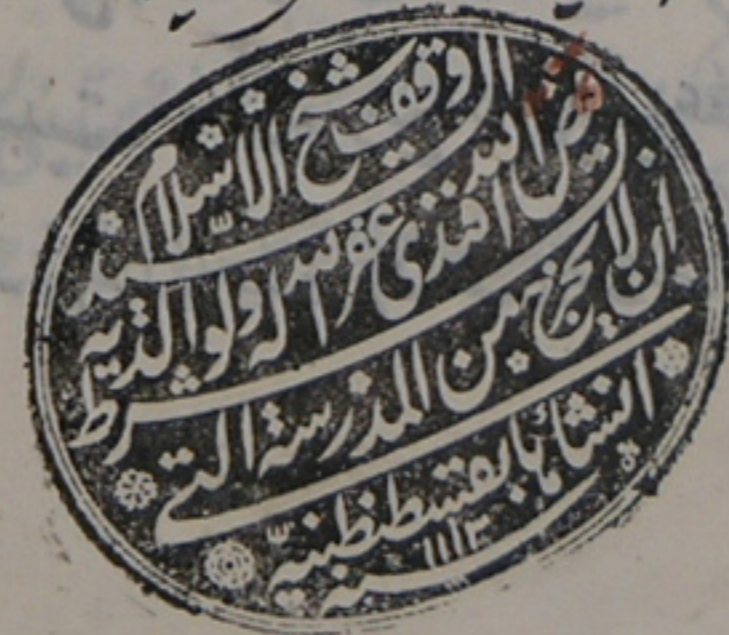 وقف شيخ الاسلام السيد
فيض الله افندى غفر الله له ولوالديه بشرط
ان لا يخرج من المدرسة التي
انشأها بقسطنطنيه
سنه ١١١٣